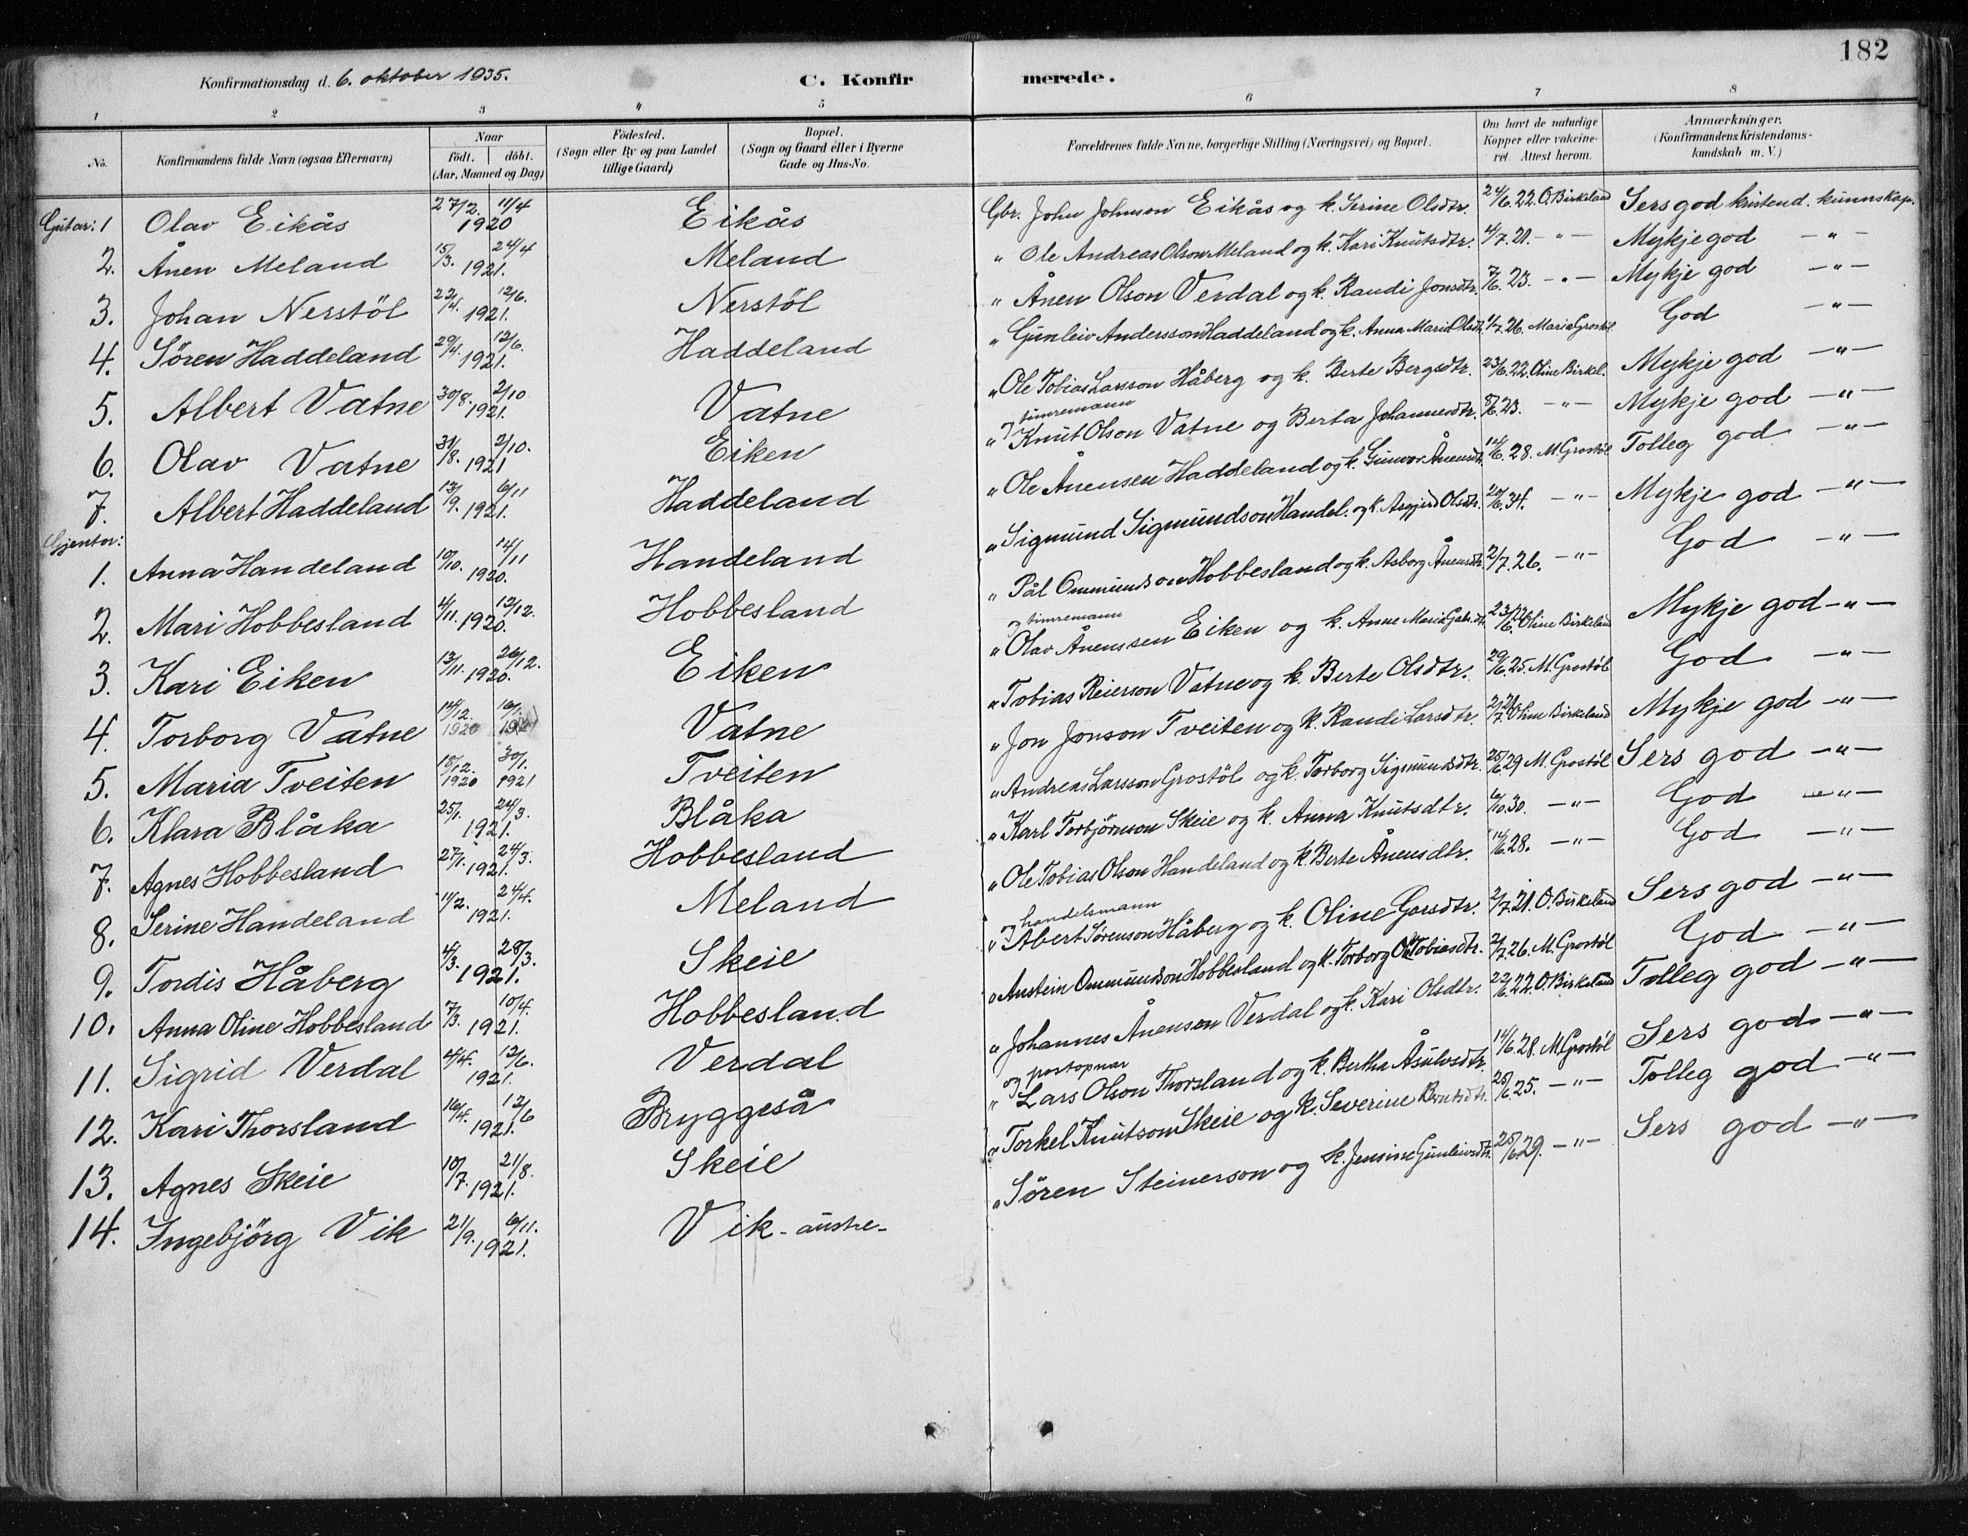 182
Konfirmationsdag d. 6. oktober 1935.
C. Konfirmerede.
1 2 3 " 5 6 7 8
No.
Konfirmandens fulde Navn (ogsaa Efternavn)
Naar
födt. döbt.
(Aar, Maaned og Dag)
Födested.
(Sogn eller By og paa Landet
tillige Gaard)
Bopæl.
(Sogn og Gaard eller i Byerne
Gade og Hus-No.
Forældrenes fulde Navne, borgerlige Stilling (Næringsvei) og Bopæl.
Om havt de naturlige
Kopper eller vakcine-
ret. Attest herom.
Anmærkninger.
(Konfirmandens Kristendoms-
kundskab m. V.)
Gutar: 1 Olav Eikås 27/2. 11/4 1920 Eikås Gbr. John Johnson Eikås og k. Serine Olsdtr. 24/6.22. O. Birkeland Sers god kristend. kunnskap.
2. Ånen Meland 15/3. 24/4 1921. Meland " Ole Andreas Olson Meland og k. Kari Knutsdtr. 4/7.21. —"— Mykje god —"—
3. Johan Nerstöl 22/4. 12/6. 1921. Nerstöl " Ånen Olson Verdal og k. Randi Jonsdtr. 7/6.23. —"— Mykje god —"—
4. Søren Haddeland 29/4. 12/6. 1921. Haddeland " Gunleiv Andersson Haddeland og k. Anna Maria Olsdtr. 1/7.26. Maria Grostöl God —"—
5. Albert Vatne 30/8. 2/10 1921. Vatne " Ole Tobias Larsson Håberg og k. Berte Bergsdtr. 23/6.22. Oline Birkel. Mykje god —"—
og timremann
6. Olav Vatne 31/8. 2/10. 1921 Eiken " Knut Olson Vatne og Berta Johannesdtr. 8/6.23. —"— Mykje god —"—
7. Albert Haddeland 13/9. 6/11 1921. Haddeland " Ole Ånensen Haddeland og k. Gunvor Ånensdtr. 14/6.28. M. Grostöl Tolleg god —"—
Gjentor:
1. Anna Handeland 10/10. 14/11 1920. Handeland " Sigmund Sigmundson Handel. og k. Asgjerd Olsdtr. 20/6.34. —"— Mykje god —"—
2. Mari Hobbesland 4/11. 12/12. 1920. Hobbesland " Pål Ommundson Hobbesland og k. Asborg Ånensdtr. 2/7.26. —"— God —"—
og timremann
3. Kari Eiken 13/11. 26/12. 1920. Eiken " Olav Ånenssen Eiken og k. Anne Maria Gabr.dtr. 23/6.22 Oline Birkeland Mykje god —"—
4. Torborg Vatne 14/12. 1920 16/1. 1921 Vatne " Tobias Reierson Vatne og k. Berte Olsdtr. 29/6.25. M. Grostöl God —"—
5. Maria Tveiten 18/12. 1920 30/1. 1921 Tveiten " Jon Jonson Tveiten og k. Randi Larsdtr. 2/7.21. Oline Birkeland Mykje god —"—
6. Klara Blåka 25/1. 24/3. 1921. Blåka " Andreas Larsson Grostöl og k. Torborg Sigmundsdtr. 25/6.29 M. Grostöl Sers god —"—
7. Agnes Hobbesland 27/1. 24/3. 1921. Hobbesland " Karl Torbjörnson Skeie og k. Anna Knutsdtr. 6/10.30. —"— God —"—
8. Serine Handeland 11/2. 24/4. 1921. Meland " Ole Tobias Olson Handeland og k. Berte Ånensdtr. 14/6.28. —"— God —"—
og handelsmann
9. Tordis Håberg 4/3. 28/3. 1921. Skeie " Albert Sørenson Håberg og k. Oline Garsdtr. 2/7.21. O. Birkeland Sers god —"—
10. Anna Oline Hobbesland 7/3. 10/4. 1921. Hobbesland " Austein Ommundson Hobbesland og k. Torborg Ole Tobiasdtr. 2/7.26. M. Grostöl God —"—
11. Sigrid Verdal 4/4. 12/6. 1921. Verdal " Johannes Ånenson Verdal og k. Kari Olsdtr. 22/6.22. O. Birkeland Tolleg god —"—
og postopnar
12. Kari Thorsland 16/4. 12/6 1921. Bryggeså " Lars Olson Thorsland og k. Bertha Åsulvsdtr. 14/6.28. M. Grostöl Sers god —"—
13. Agnes Skeie 10/7. 21/8. 1921. Skeie " Torkel Knutson Skeie og k. Severine Berntsdtr. 25/6.25. —"— Tolleg god —"—
14. Ingebjörg Vik 21/9. 6/11. 1921. Vik - austre - " Søren Steinerson og k. Jensine Gunleivsdtr. 25/6.29. —"— Sers god —"—